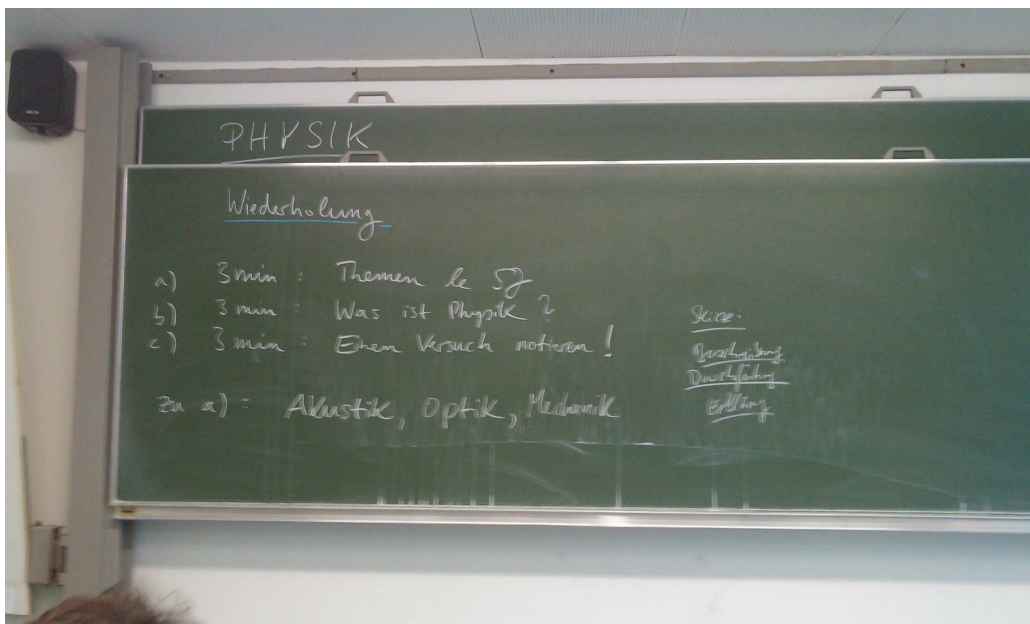 PHYSIK
Wiederholung
a) 3 min : Themen le SJ
b) 3 min : Was ist Physik?
c) 3 min : Einen Versuch notieren!
zu a) : Akustik, Optik, Mechanik
Skizze:
Durchführung
Erklärung